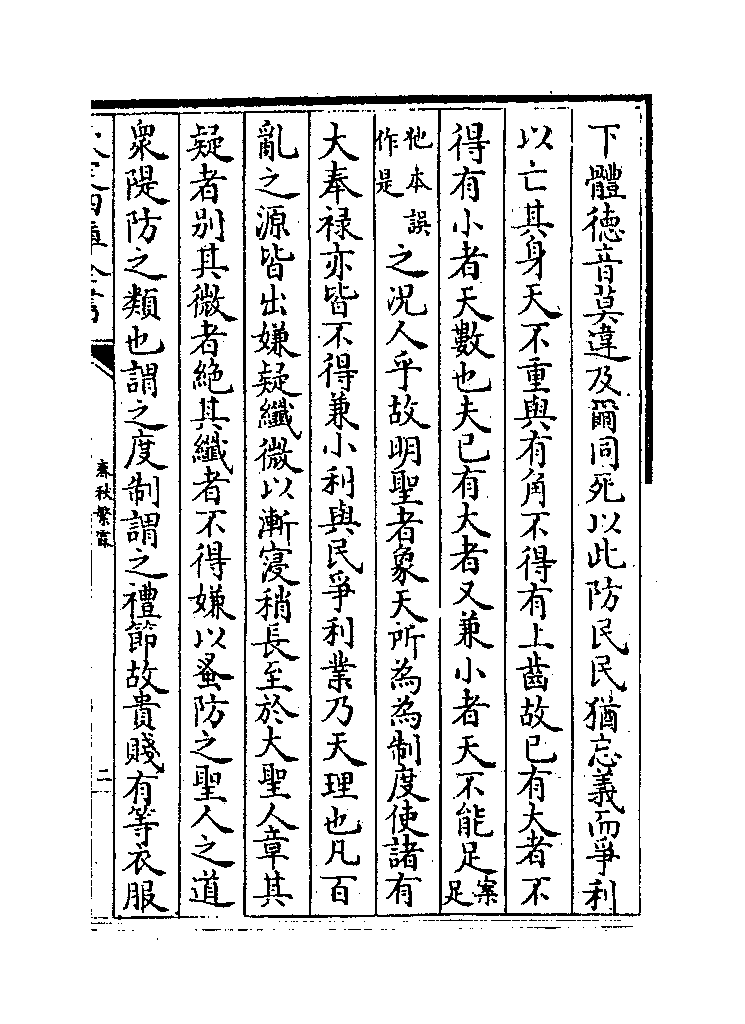 下體德音莫違及爾同死以此防民民猶忘義而爭利
以亡其身天不重與有角不得有上齒故已有大者不
得有小者天數也夫已有大者又兼小者天不能足案足
他本誤作是之况人乎故明聖者象天所為為制度使諸有
大奉禄亦皆不得兼小利與民爭利業乃天理也凡百
亂之源皆出嫌疑纖微以漸寖稍長至於大聖人章其
疑者别其微者絶其纖者不得嫌以蚤防之聖人之道
衆隄防之類也謂之度制謂之禮節故貴賤有等衣服
春秋繁露
二